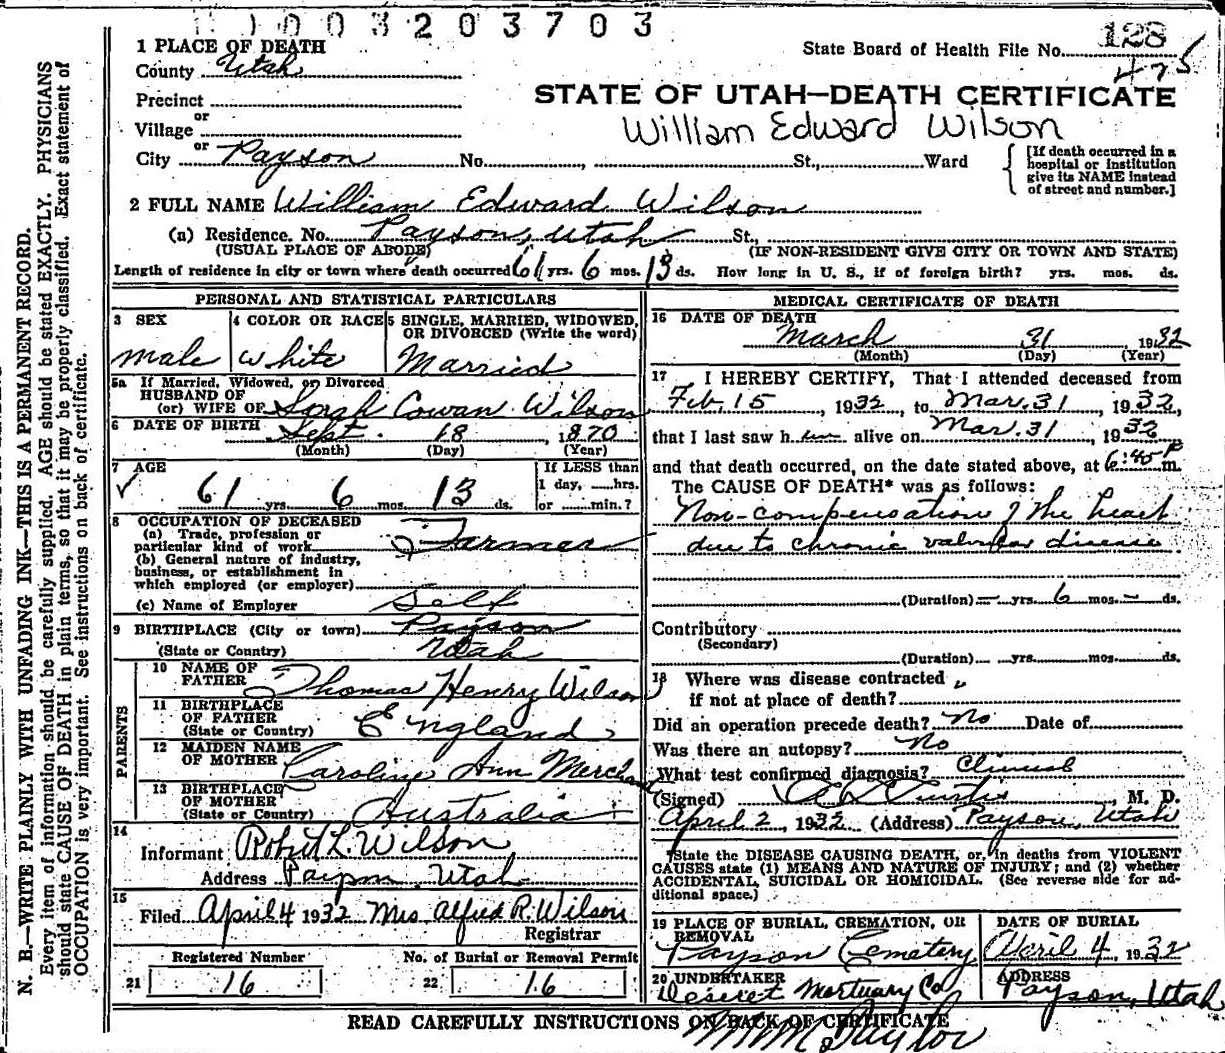 0 0 3 2 0 3 7 0 3
1 PLACE OF DEATH
State Board of Health File No. 128
County Utah
475
Precinct
STATE OF UTAH—DEATH CERTIFICATE
or
Village
William Edward Wilson
or
City Payson No. , St., Ward
[If death occurred in a
hospital or institution
give its NAME instead
of street and number.]
2 FULL NAME William Edward Wilson
(a) Residence. No. Payson, Utah St.,
(USUAL PLACE OF ABODE) (IF NON-RESIDENT GIVE CITY OR TOWN AND STATE)
Length of residence in city or town where death occurred 61 yrs. 6 mos. 13 ds. How long in U. S., if of foreign birth? yrs. mos. ds.
PERSONAL AND STATISTICAL PARTICULARS
3 SEX
male
4 COLOR OR RACE
white
5 SINGLE, MARRIED, WIDOWED,
OR DIVORCED (Write the word)
Married
5a If Married, Widowed, or Divorced
HUSBAND OF
(or) WIFE OF Sarah Cowan Wilson
6 DATE OF BIRTH Sept. 18, 1870
(Month) (Day) (Year)
7 AGE
61 yrs. 6 mos. 13 ds.
If LESS than
1 day, hrs.
or min.?
8 OCCUPATION OF DECEASED
(a) Trade, profession or
particular kind of work Farmer
(b) General nature of industry,
business, or establishment in
which employed (or employer)
(c) Name of Employer Self
9 BIRTHPLACE (City or town) Payson
(State or Country) Utah
PARENTS
10 NAME OF
FATHER Thomas Henry Wilson
11 BIRTHPLACE
OF FATHER
(State or Country) England
12 MAIDEN NAME
OF MOTHER Caroline Ann Merchant
13 BIRTHPLACE
OF MOTHER
(State or Country) Australia
14
Informant Robert L. Wilson
Address Payson, Utah
15
Filed April 4 1932 Mrs Alfred R. Wilson
Registrar
Registered Number No. of Burial or Removal Permit
21 16 22 16
MEDICAL CERTIFICATE OF DEATH
16 DATE OF DEATH
March 31, 1932
(Month) (Day) (Year)
17 I HEREBY CERTIFY, That I attended deceased from
Feb. 15, 1932, to Mar. 31, 1932,
that I last saw him alive on Mar. 31, 1932
and that death occurred, on the date stated above, at 6:40 P m.
The CAUSE OF DEATH* was as follows:
Non-compensation of the heart
due to chronic valvular disease
(Duration) — yrs. 6 mos. — ds.
Contributory
(Secondary)
(Duration) yrs. mos. ds.
18 Where was disease contracted
if not at place of death?
Did an operation precede death? No Date of
Was there an autopsy? No
What test confirmed diagnosis? Clinical
(Signed) Curtis, M. D.
April 2, 1932 (Address) Payson, Utah
*State the DISEASE CAUSING DEATH, or, in deaths from VIOLENT
CAUSES state (1) MEANS AND NATURE OF INJURY; and (2) whether
ACCIDENTAL, SUICIDAL OR HOMICIDAL. (See reverse side for ad-
ditional space.)
19 PLACE OF BURIAL, CREMATION, OR
REMOVAL
Payson Cemetery
DATE OF BURIAL
April 4, 1932
20 UNDERTAKER
Deseret Mortuary Co
ADDRESS
Payson, Utah
READ CAREFULLY INSTRUCTIONS ON BACK OF CERTIFICATE
Taylor
N. B.—WRITE PLAINLY WITH UNFADING INK—THIS IS A PERMANENT RECORD.
Every item of information should be carefully supplied. AGE should be stated EXACTLY. PHYSICIANS
should state CAUSE OF DEATH in plain terms, so that it may be properly classified. Exact statement of
OCCUPATION is very important. See instructions on back of certificate.